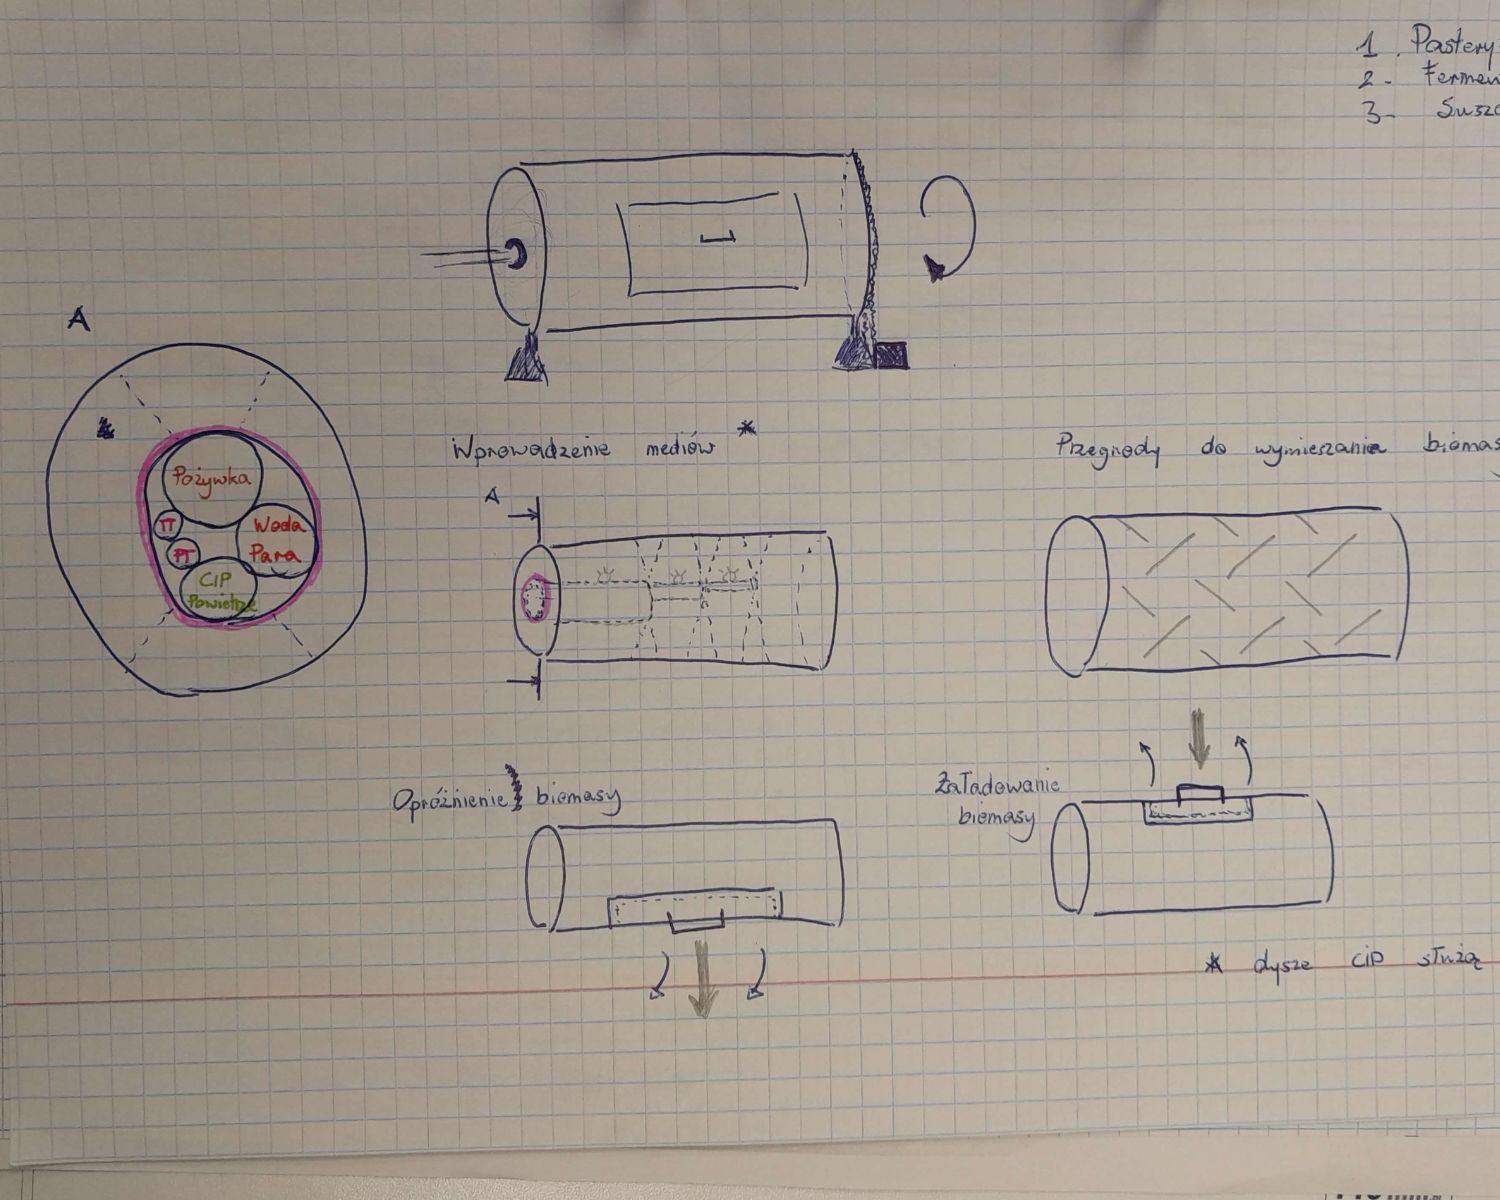 1. Pastery
2- Fermen
3- Susz
A
Pożywka
TT
Woda
PT
Para
CIP
Powietrze
Wprowadzenie mediów *
A
Przegrody do wymieszania biomas
Opróżnienie biomasy
Załadowanie
biomasy
* dysze CIP służą